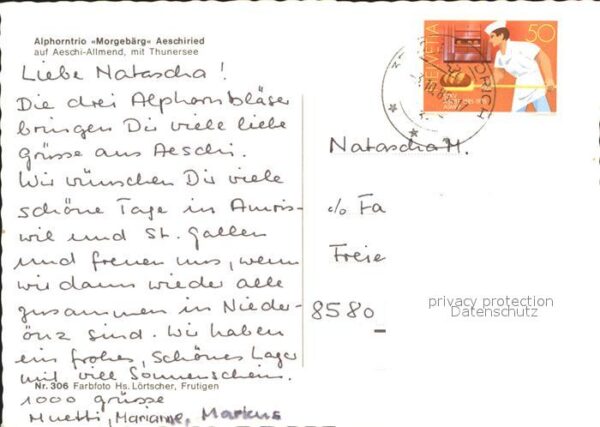 Alphorntrio «Morgebärg» Aeschiried
auf Aeschi-Allmend, mit Thunersee
Liebe Natascha!
Die drei Alphornbläser
bringen Dir viele liebe
grüsse aus Aeschi.
Wir wünschen Dir viele
schöne Tage in Amris-
wil und St. Gallen
und freuen uns, wenn
wir dann wieder alle
zusammen in Nieder-
önz sind. Wir haben
ein frohes, schönes Lager
mit viel Sonnenschein.
Nr. 306 Farbfoto Hs. Lörtscher, Frutigen
1000 grüsse
Muetti, Marianne, Markus
HELVETIA
50
Natascha H.
c/o Fa
Freie
8580
privacy protection
Datenschutz